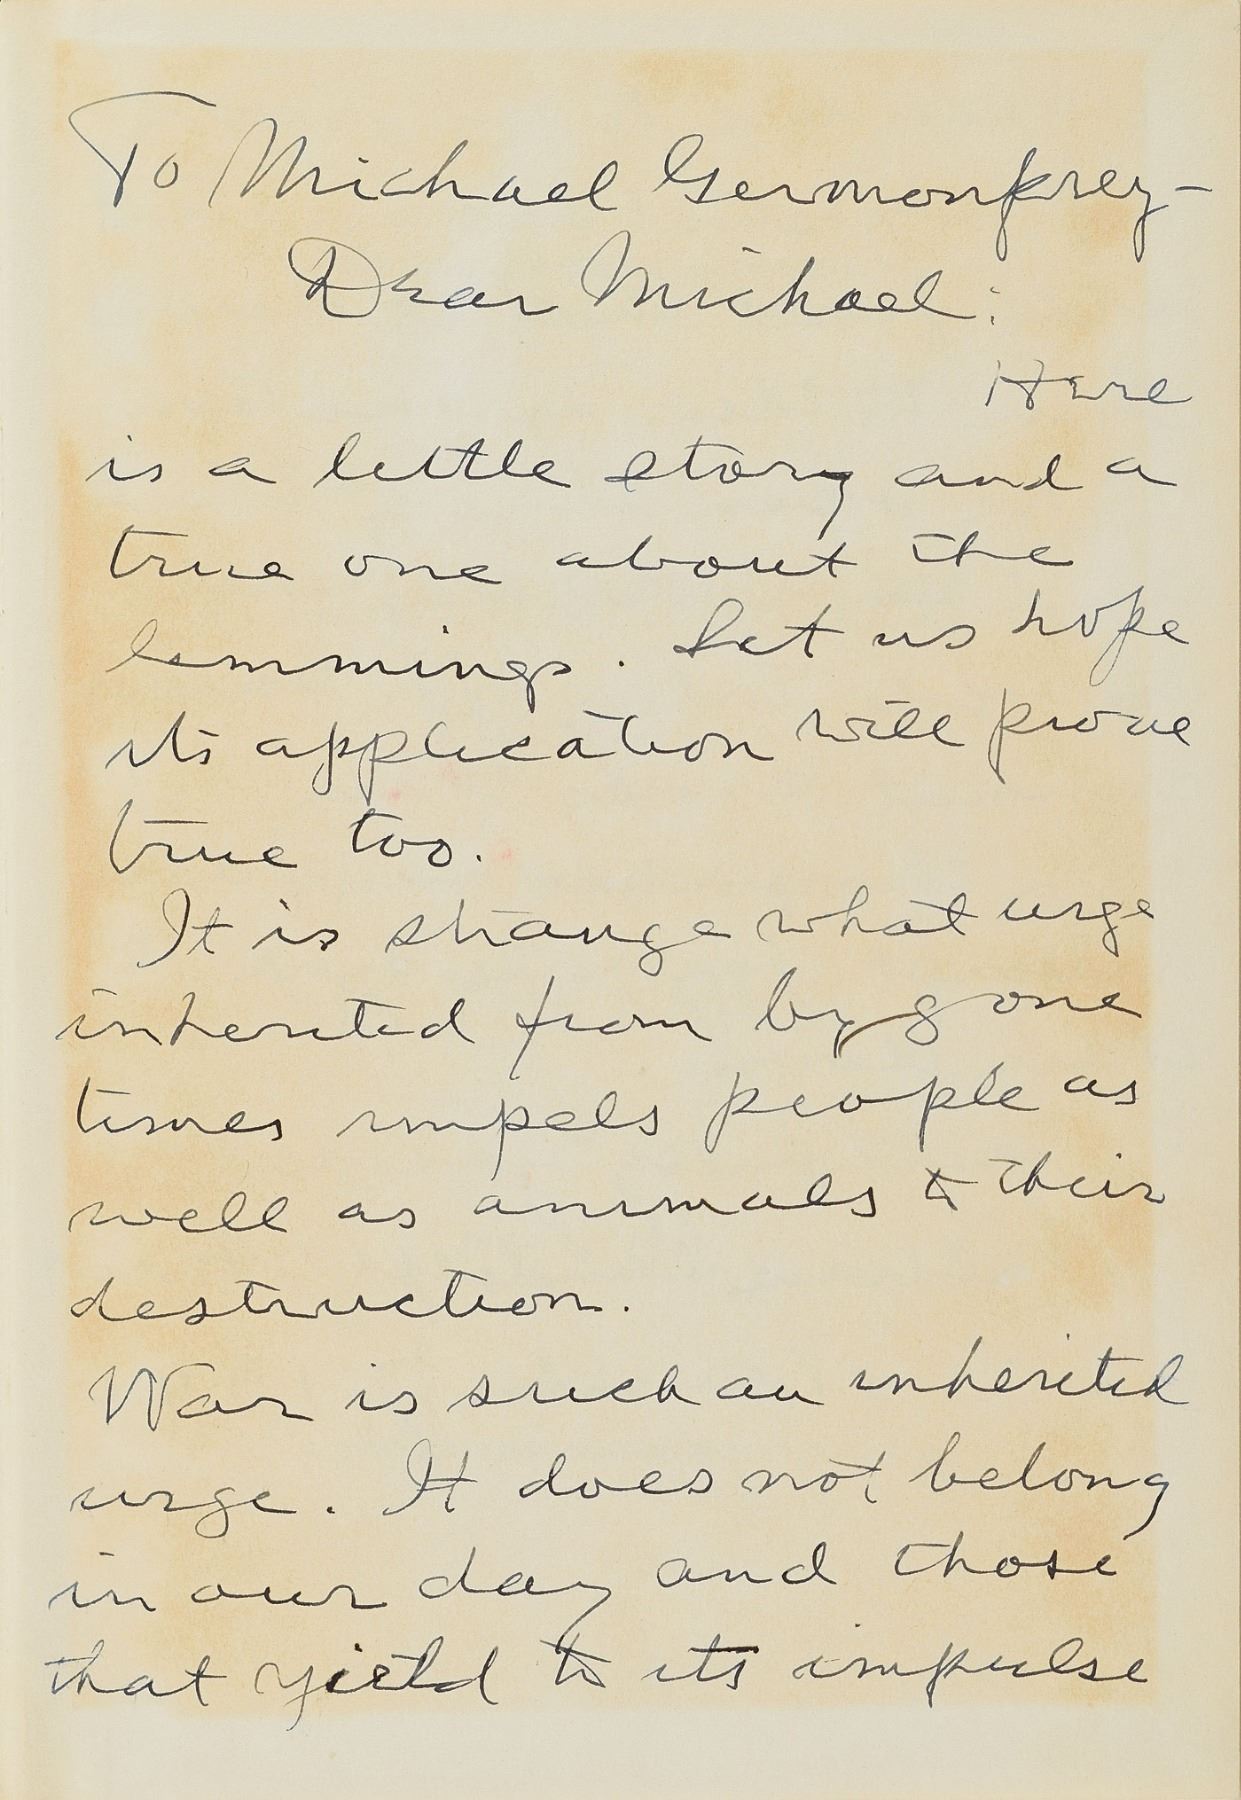 To Michael Germonprey-
Dear Michael:
Here
is a little story and a
true one about the
lemmings. Let us hope
its application will prove
true too.
It is strange what urge
inherited from by gone
times impels people as
well as animals to their
destruction.
War is such an inherited
urge. It does not belong
in our day and those
that yield to its impulse